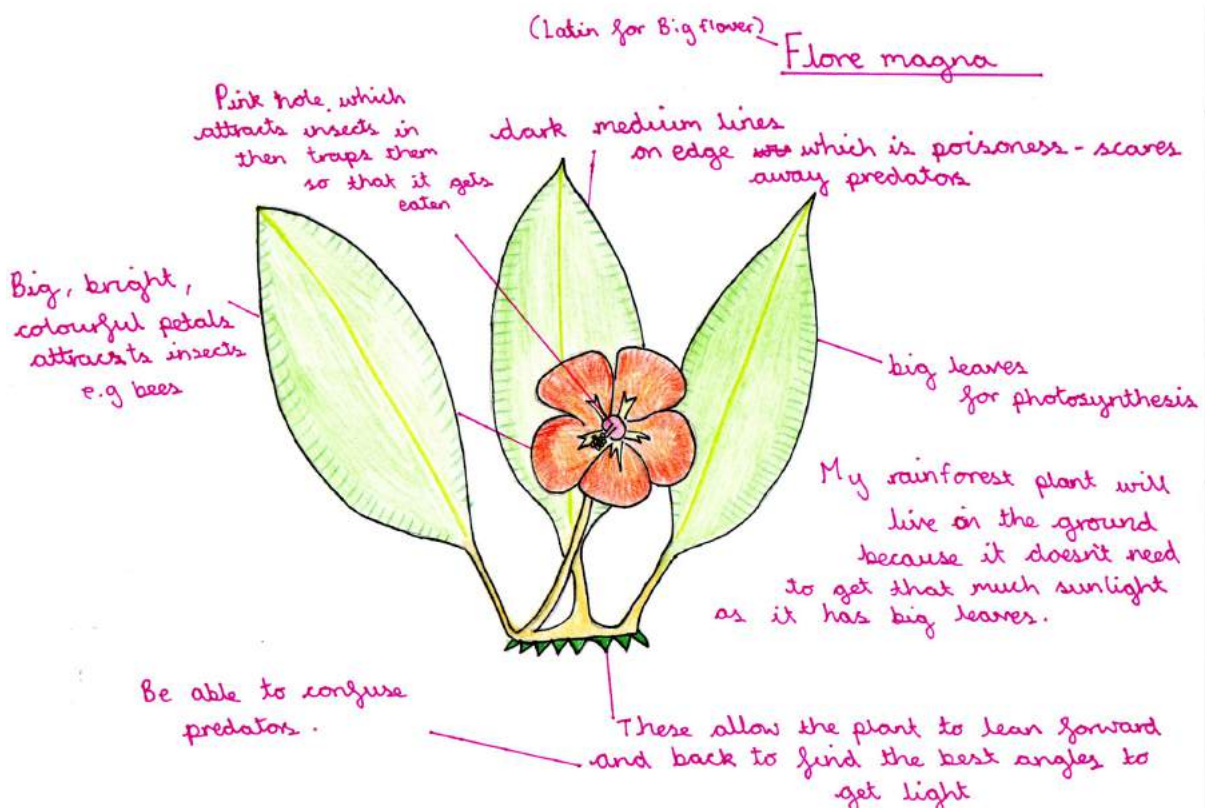 (Latin for Big flower)
Flore magna
Pink hole, which
attracts insects in
then traps them
so that it gets
eaten
dark medium lines
on edge which is poisoness - scares
away predators
Big, bright,
colourful petals
attracsts insects
e.g bees
big leaves
for photosynthesis
My rainforest plant will
live on the ground
because it doesn't need
to get that much sunlight
as it has big leaves.
Be able to confuse
predators.
These allow the plant to lean forward
and back to find the best angles to
get light